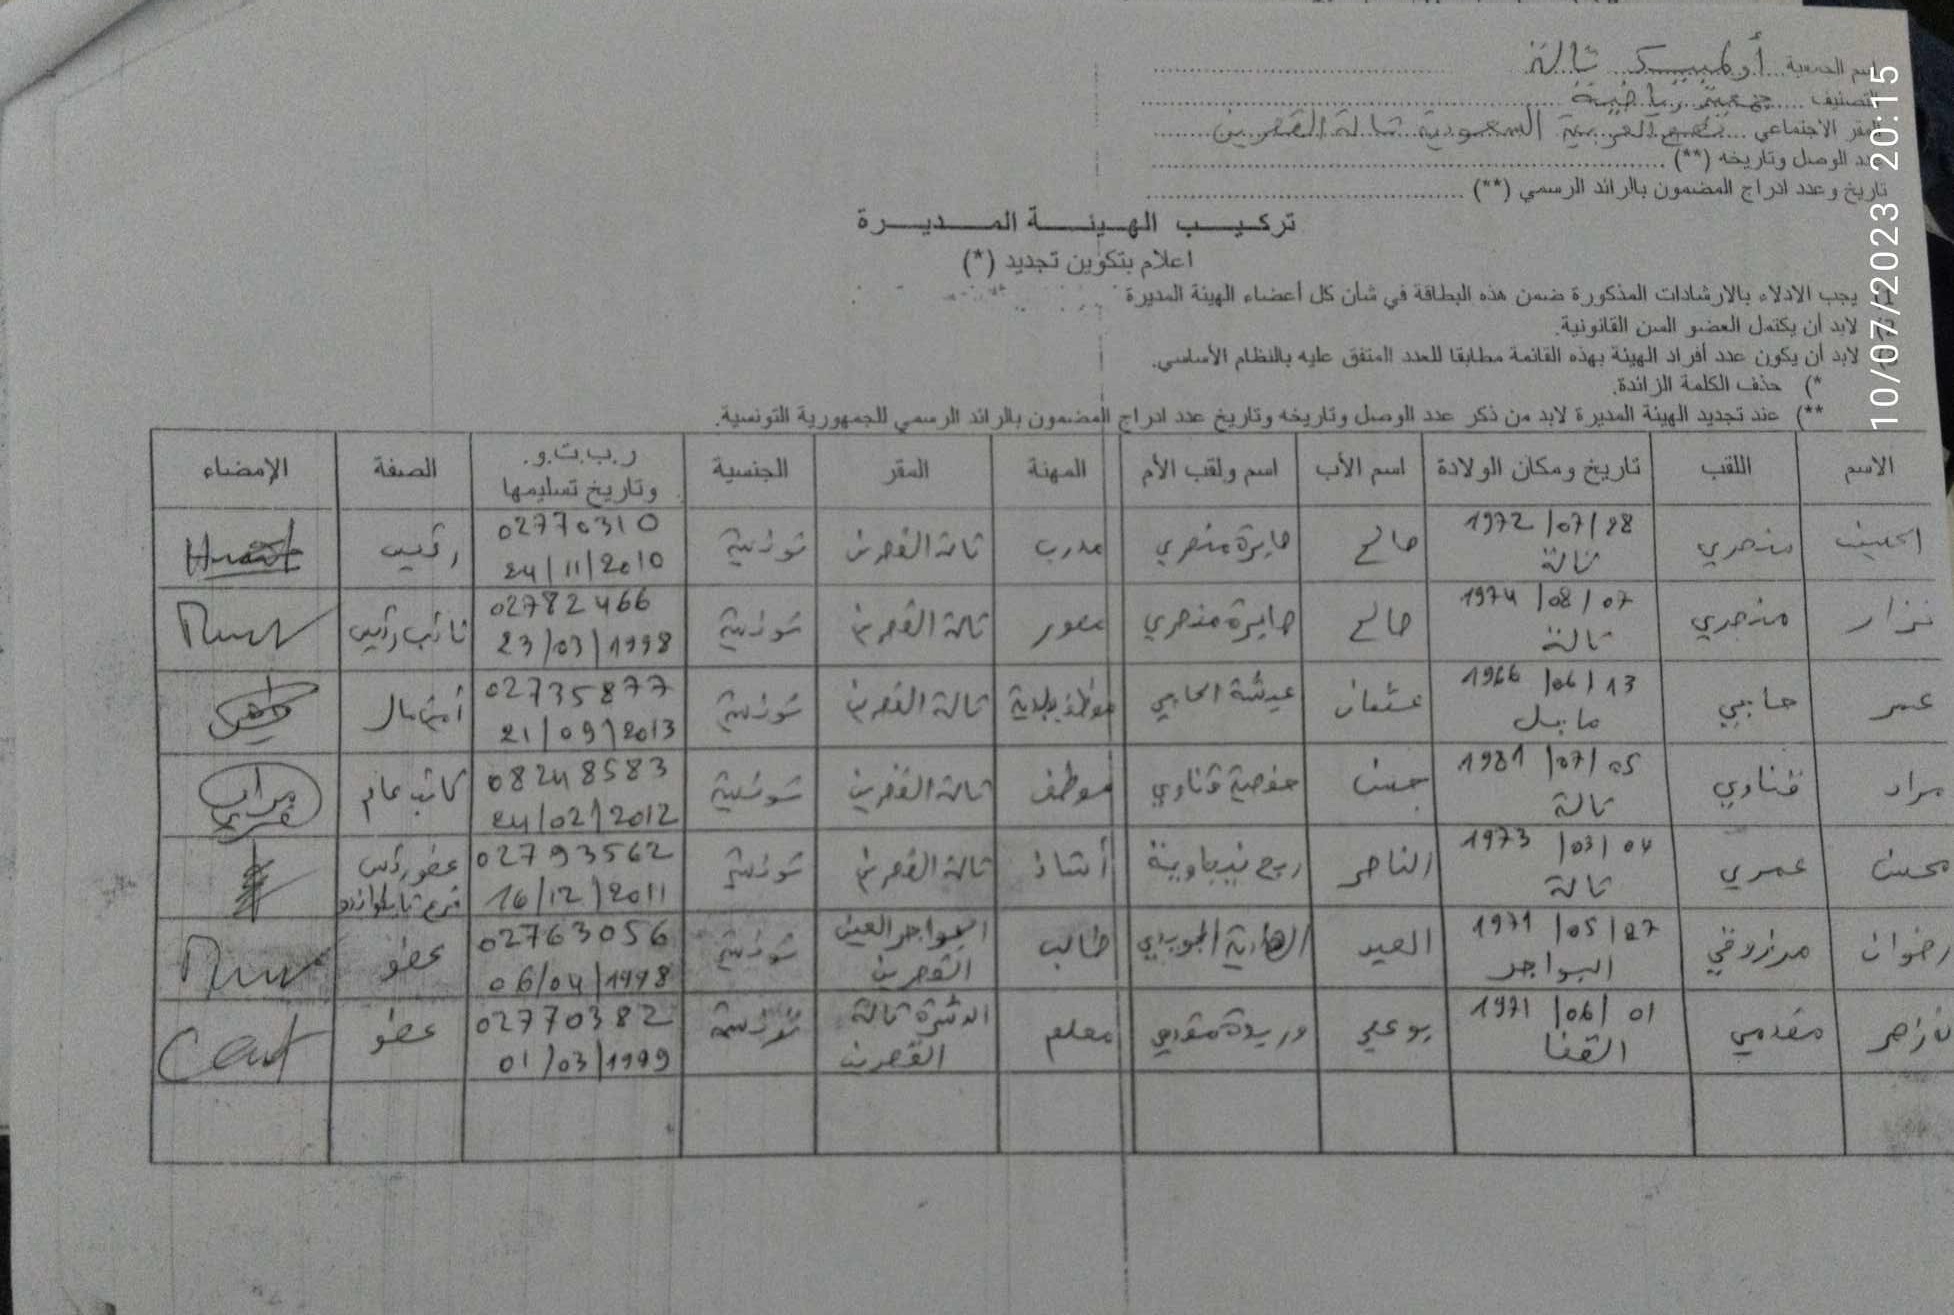 اسم الجمعية ... أولمبيك تالة
التصنيف ... جمعية رياضية
المقر الاجتماعي ... العربية السعودية تالة القصرين
عدد الوصل وتاريخه (**) ...
تاريخ وعدد ادراج المضمون بالرائد الرسمي (**) ...
تركيب الهيئة المديرة
اعلام بتكوين تجديد (*)
1) يجب الادلاء بالارشادات المذكورة ضمن هذه البطاقة في شأن كل أعضاء الهيئة المديرة
2) لابد أن يكتمل العضو السن القانونية.
3) لابد أن يكون عدد أفراد الهيئة بهذه القائمة مطابقا للعدد المتفق عليه بالنظام الأساسي.
*) حذف الكلمة الزائدة.
**) عند تجديد الهيئة المديرة لابد من ذكر عدد الوصل وتاريخه وتاريخ عدد ادراج المضمون بالرائد الرسمي للجمهورية التونسية.
الاسم اللقب تاريخ ومكان الولادة اسم الأب اسم ولقب الأم المهنة المقر الجنسية ر.ب.ت.و. وتاريخ تسليمها الصفة الإمضاء
منصري 28/07/1972 تالة صالح صابرة منصري مدرب تالة القصرين تونسية 02770310 24/11/2010 رئيس
نزار منصري 07/08/1974 تالة صالح صابرة منصري مصور تالة القصرين تونسية 02782466 23/03/1998 نائب رئيس
عمر حاجبي 13/06/1966 عثمان عيشة الحاجبي موظف بلدية تالة القصرين تونسية 02735877 21/09/2013 أمين مال
مراد قناوي 05/07/1981 تالة حفصية قناوي موظف تالة القصرين تونسية 08248583 24/02/2012 كاتب عام
محسن عمري 04/03/1973 تالة الناصر أستاذ تالة القصرين تونسية 02793562 16/12/2011 عضو رئيس فرع
رضوان مرزوقي 27/05/1971 البواجر العيد الهادية طالب البواجر العيون القصرين تونسية 02763056 06/04/1998 عضو
مقدمي 01/06/1971 القنا بوعلي وريدة مقدمي معلم الدشرة تالة القصرين تونسية 02770382 01/03/1999 عضو
10/07/2023 20:15